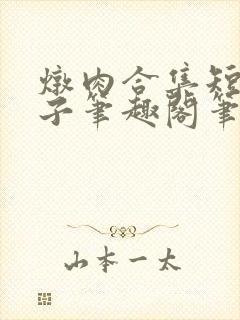 燉肉合集短
子筆趣閣筆
山本一太